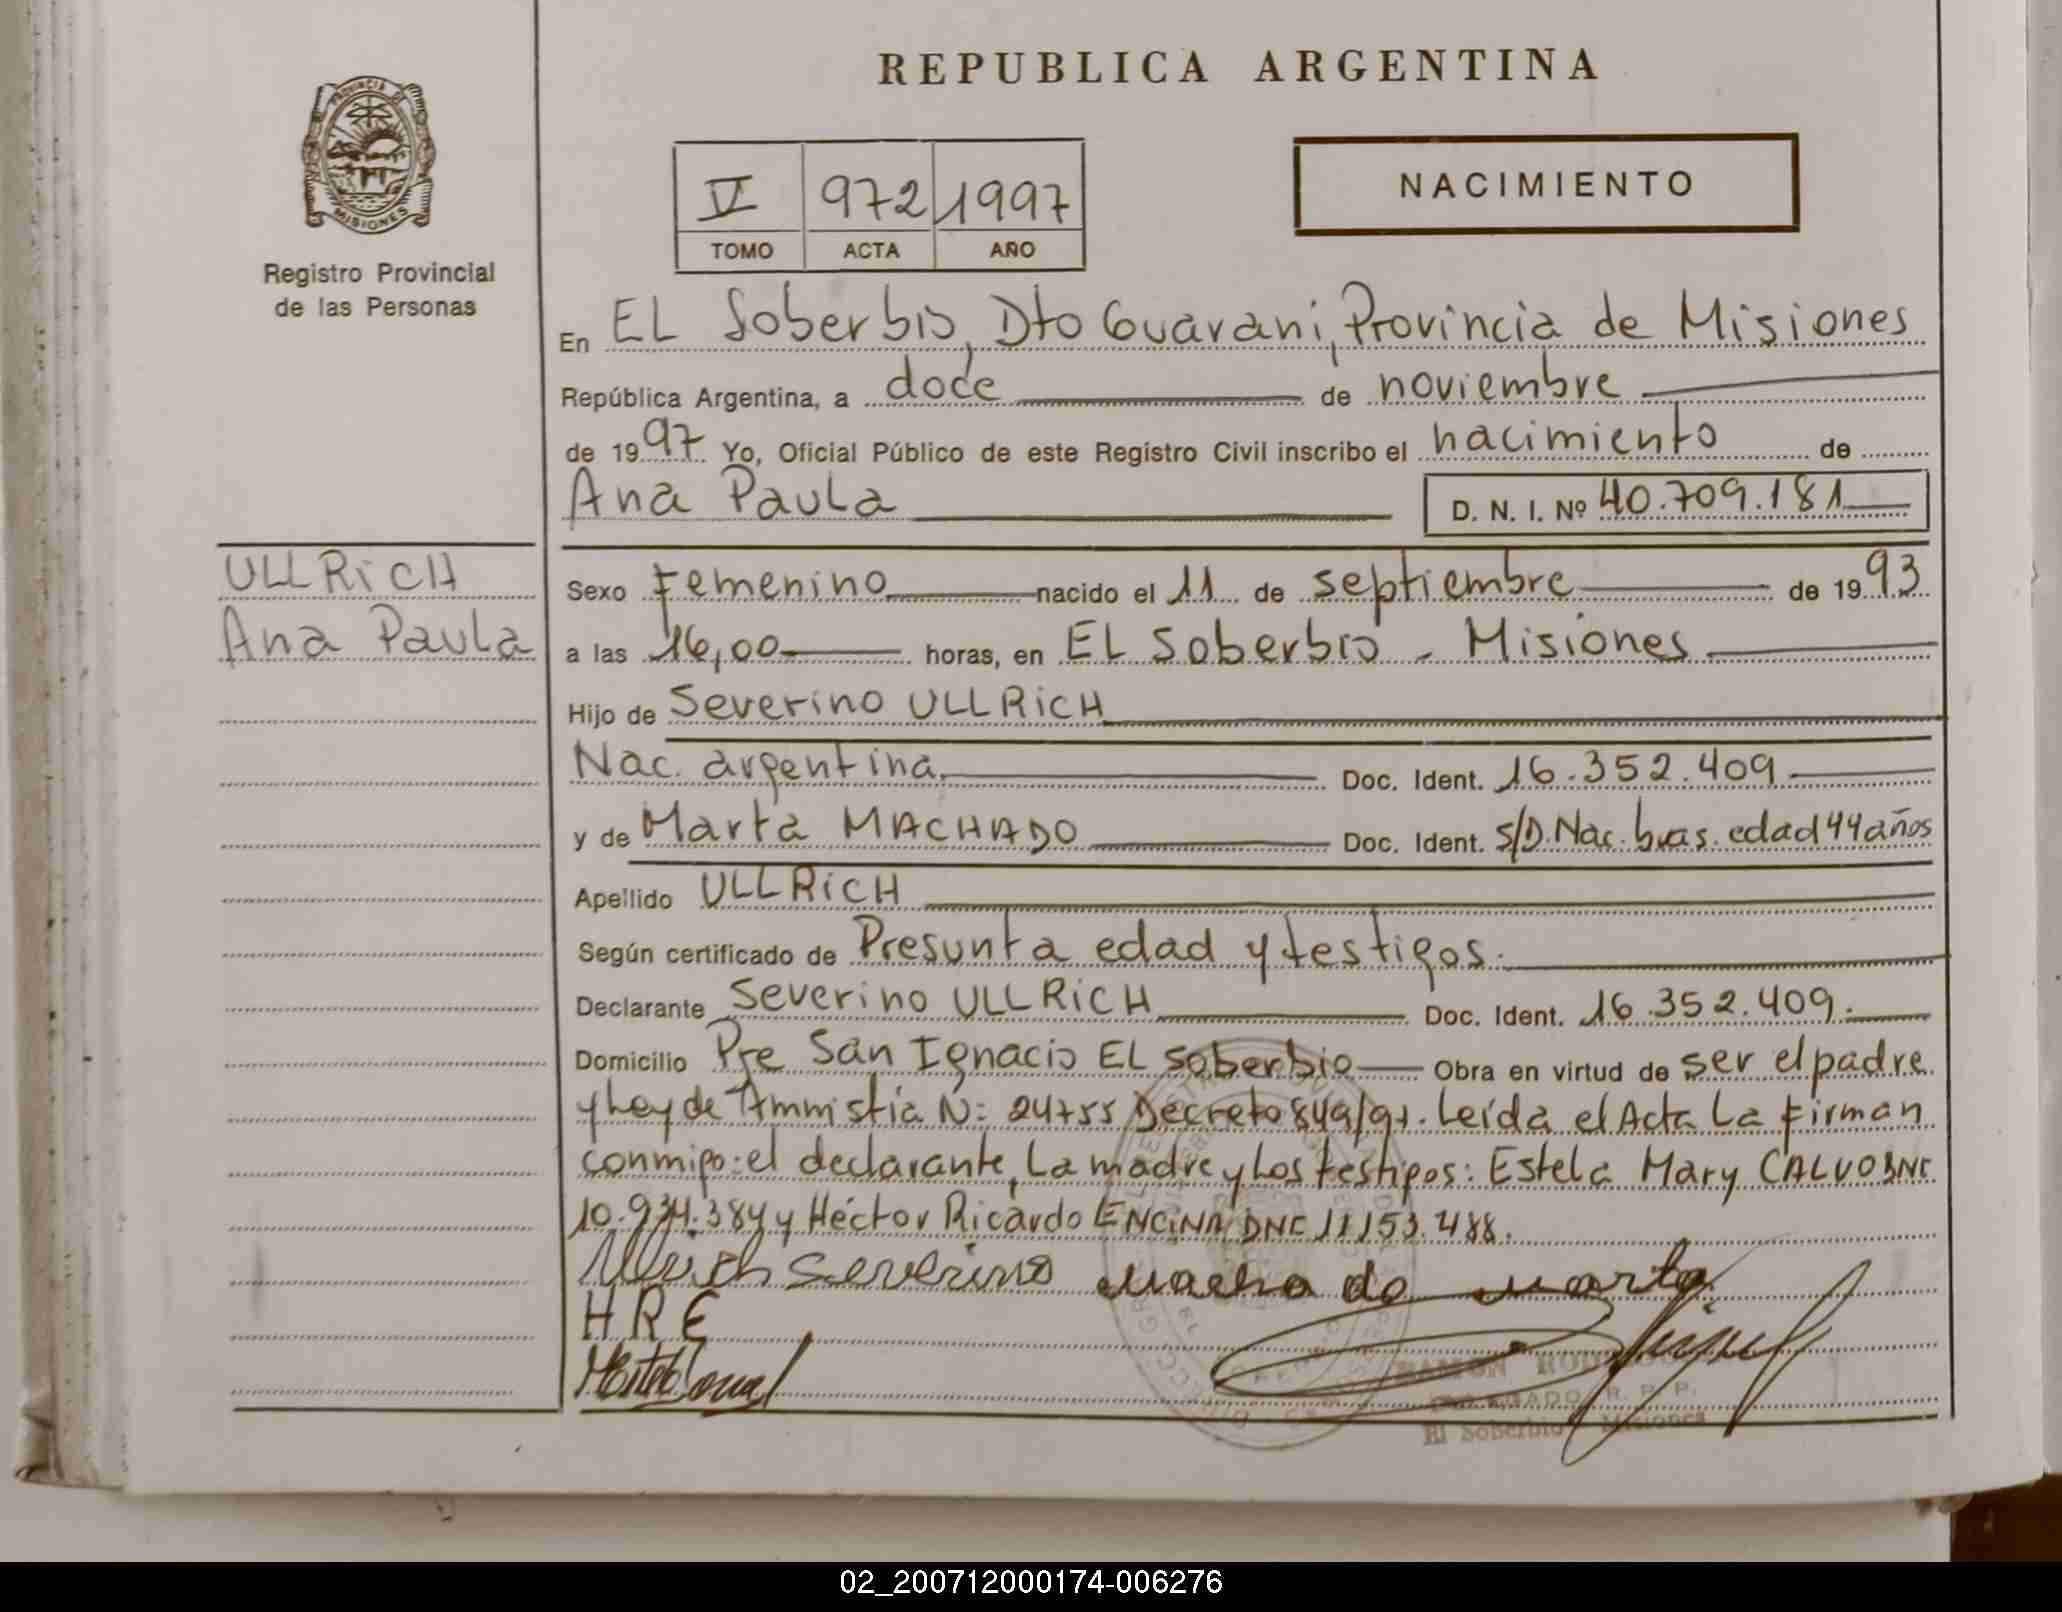 REPUBLICA ARGENTINA
PROVINCIA DE
MISIONES
Registro Provincial
de las Personas
V 972 1997
TOMO ACTA AÑO
NACIMIENTO
En EL Soberbio, Dto Guarani, Provincia de Misiones
República Argentina, a doce de noviembre
de 1997 Yo, Oficial Público de este Registro Civil inscribo el nacimiento de
Ana Paula D. N. I. Nº 40.709.181
ULLRiCH
Ana Paula
Sexo Femenino nacido el 11 de septiembre de 1993
a las 16,00 horas, en EL Soberbio - Misiones
Hijo de Severino ULLRiCH
Nac. argentina Doc. Ident. 16.352.409
y de Marta MACHADO Doc. Ident. S/D. Nac. bras. edad 44 años
Apellido ULLRiCH
Según certificado de Presunta edad y testigos.
Declarante Severino ULLRiCH Doc. Ident. 16.352.409.
Domicilio Pje San Ignacio EL Soberbio Obra en virtud de ser el padre
y Ley de Ammistia N: 24755 Decreto 849/97. Leída el Acta La firman
conmigo: el declarante, La madre y Los testigos: Estela Mary CALVO DNI
10.934.384 y Héctor Ricardo ENCiNA DNI 11153.488.
Ullrich Severino Machado Marta
H R E
RAMON
R. P. P.
El Soberbio - Misiones
02_200712000174-006276